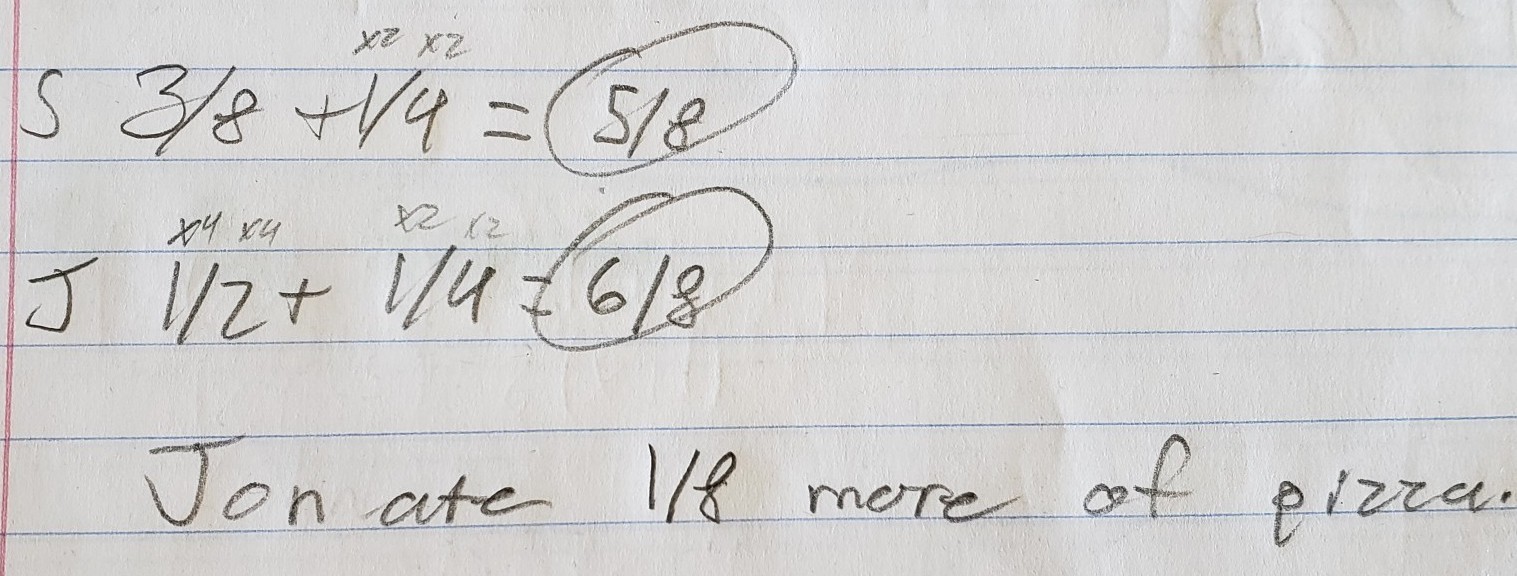 x2 x2
S 3/8 + 1/4 = 5/8
x4 x4 x2 x2
J 1/2 + 1/4 = 6/8
Jon ate 1/8 more of pizza.